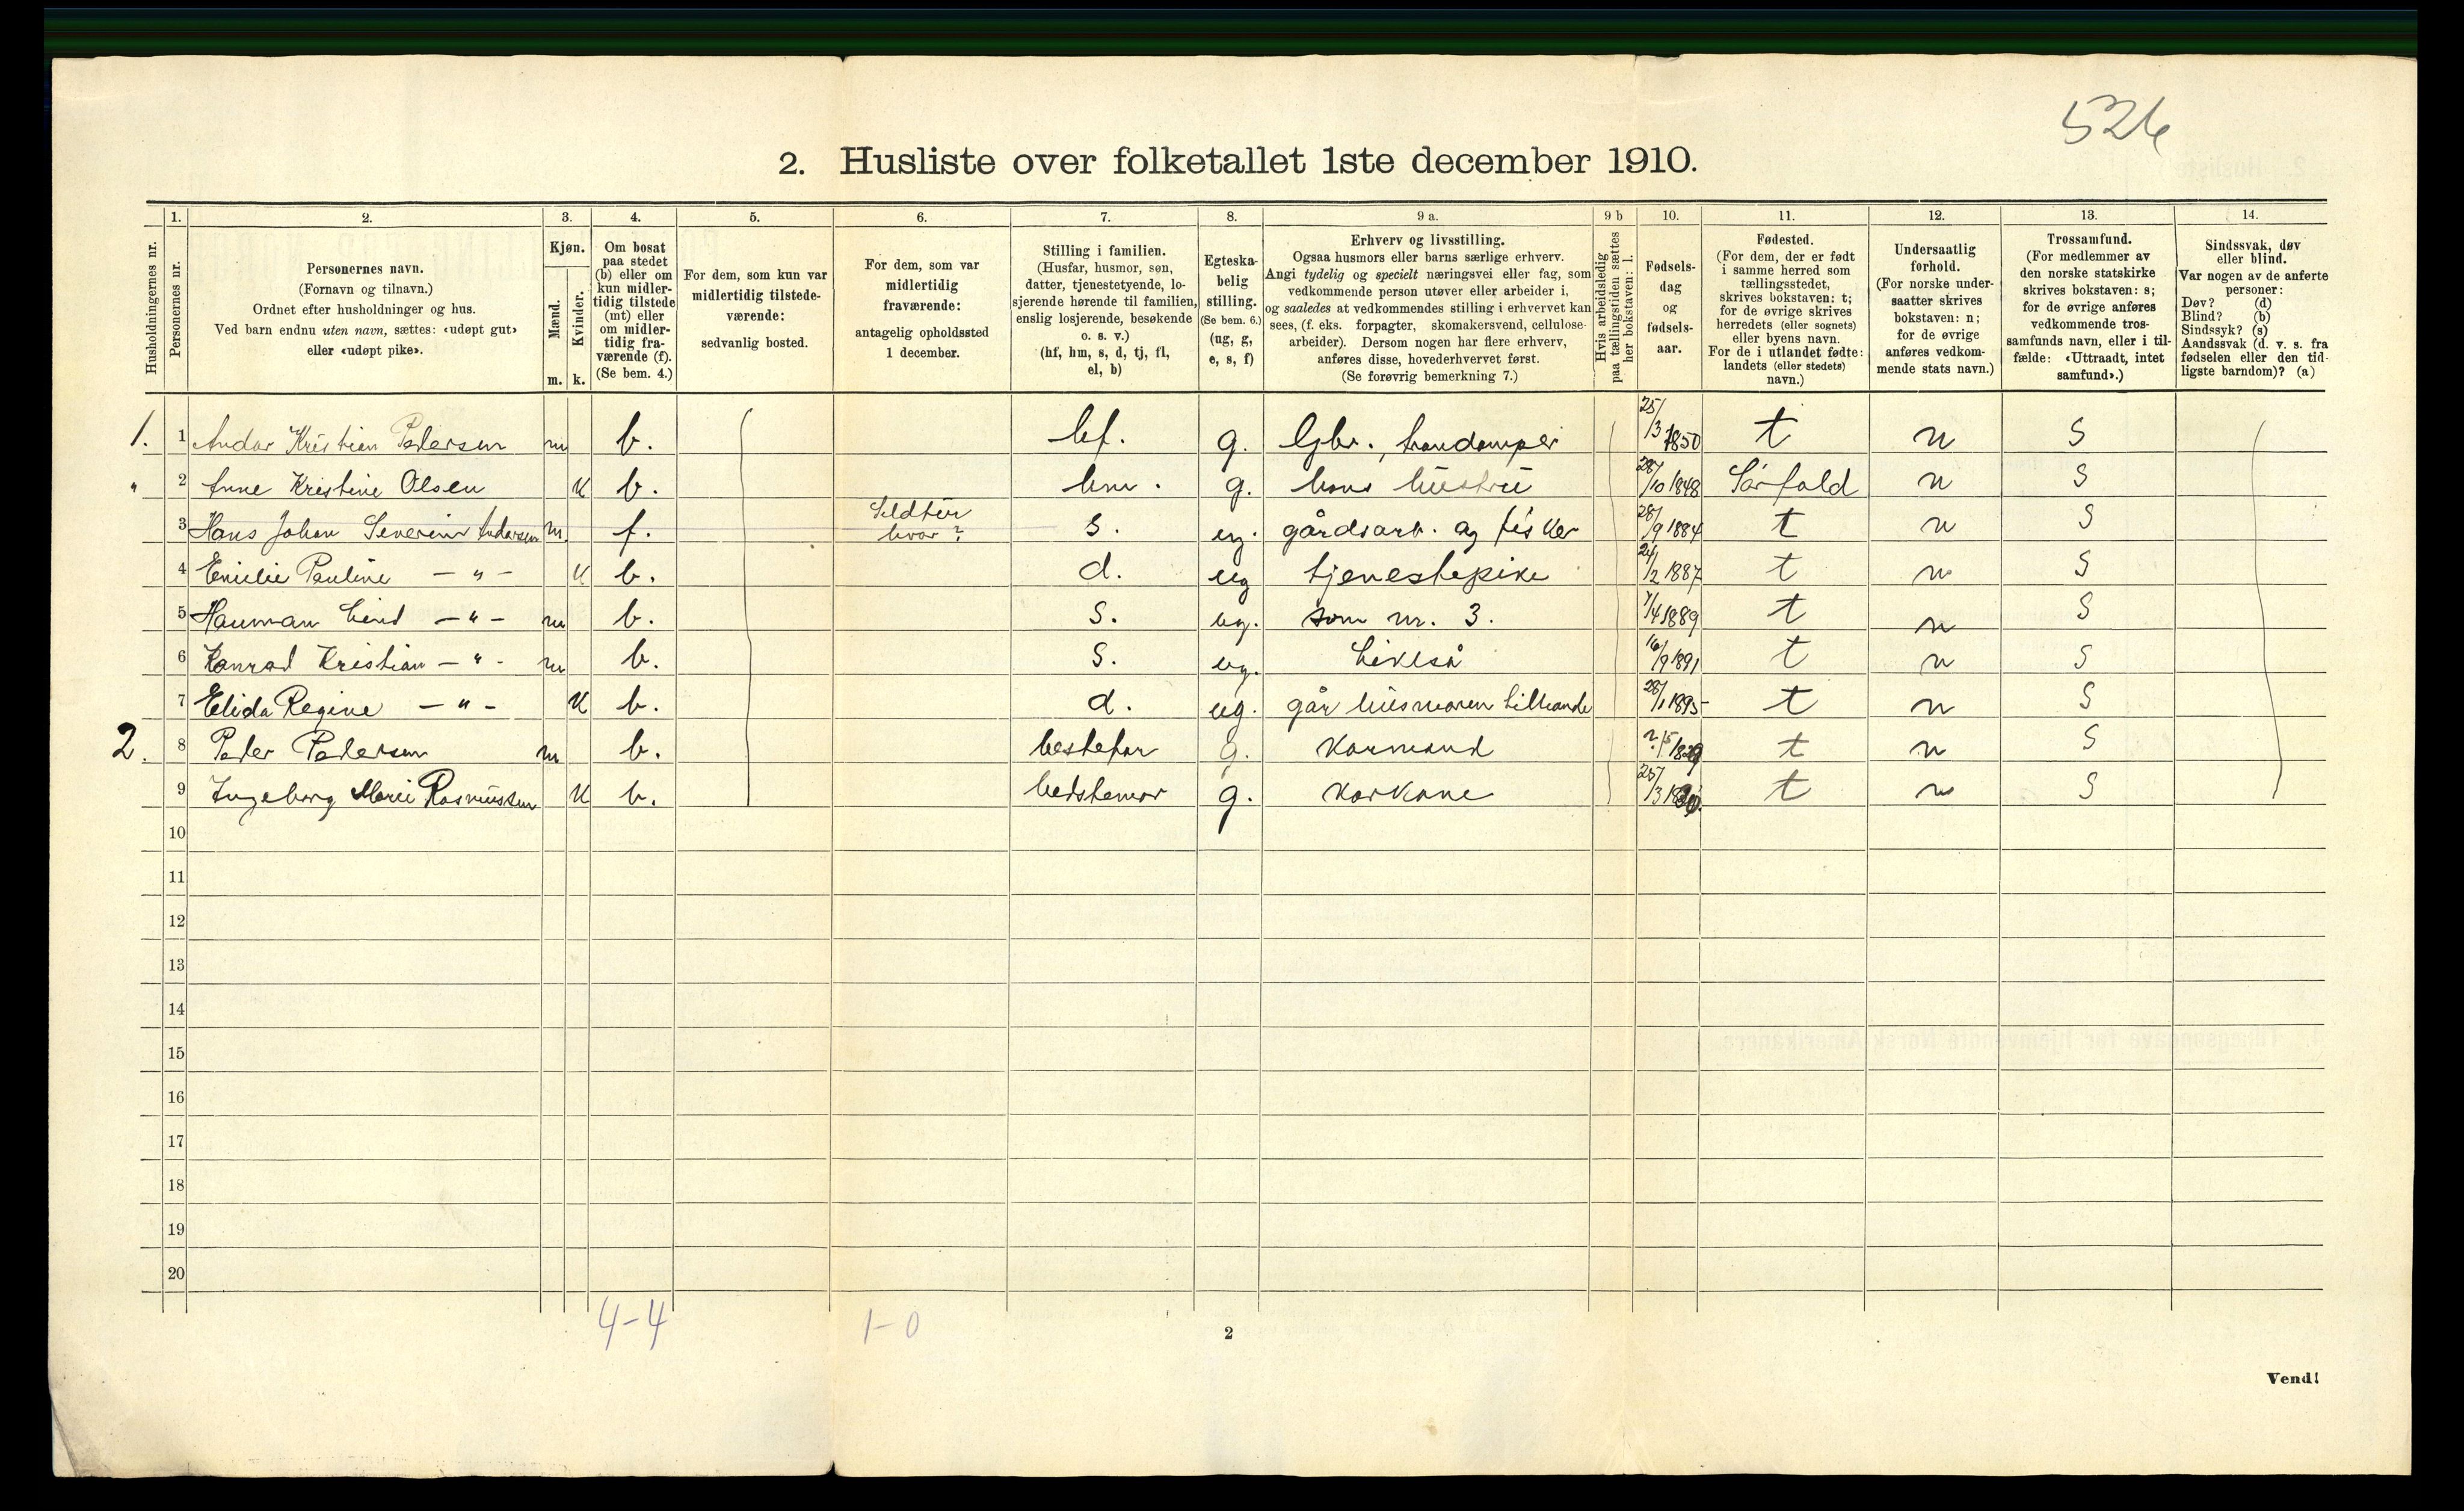 526
2. Husliste over folketallet 1ste december 1910.
Husholdningernes nr.
1. Personernes nr.
2. Personernes navn. (Fornavn og tilnavn.) Ordnet efter husholdninger og hus. Ved barn endnu uten navn, sættes: «udøpt gut» eller «udøpt pike».
3. Kjøn. Mænd. m. Kvinder. k.
4. Om bosat paa stedet (b) eller om kun midlertidig tilstede (mt) eller om midlertidig fraværende (f). (Se bem. 4.)
5. For dem, som kun var midlertidig tilstedeværende: sedvanlig bosted.
6. For dem, som var midlertidig fraværende: antagelig opholdssted 1 december.
7. Stilling i familien. (Husfar, husmor, søn, datter, tjenestetyende, losjerende hørende til familien, enslig losjerende, besøkende o. s. v.) (hf, hm, s, d, tj, fl, el, b)
8. Egteskabelig stilling. (Se bem. 6.) (ug, g, e, s, f)
9 a. Erhverv og livsstilling. Ogsaa husmors eller barns særlige erhverv. Angi tydelig og specielt næringsvei eller fag, som vedkommende person utøver eller arbeider i, og saaledes at vedkommendes stilling i erhvervet kan sees, (f. eks. forpagter, skomakersvend, cellulosearbeider). Dersom nogen har flere erhverv, anføres disse, hovederhvervet først. (Se forøvrig bemerkning 7.)
9 b Hvis arbeidsledig paa tællingstiden sættes her bokstaven: l.
10. Fødselsdag og fødselsaar.
11. Fødested. (For dem, der er født i samme herred som tællingsstedet, skrives bokstaven: t; for de øvrige skrives herredets (eller sognets) eller byens navn. For de i utlandet fødte: landets (eller stedets) navn.)
12. Undersaatlig forhold. (For norske undersaatter skrives bokstaven: n; for de øvrige anføres vedkommende stats navn.)
13. Trossamfund. (For medlemmer av den norske statskirke skrives bokstaven: s; for de øvrige anføres vedkommende trossamfunds navn, eller i tilfælde: «Uttraadt, intet samfund».)
14. Sindssvak, døv eller blind. Var nogen av de anførte personer: Døv? (d) Blind? (b) Sindssyk? (s) Aandssvak (d. v. s. fra fødselen eller den tidligste barndom)? (a)
1. 1 Andor Kristian Pedersen m b. hf. g. Gbr., trandamper 25/3 1850 t n S
" 2 Anne Kristine Olsen k b. hm. g. hans hustru 28/10 1848 Sørfold n S
3 Hans Johan Severin Andorsen m. f. Sildtur hvor? s. ug. gårdsarb. og fisker 28/9 1884 t n S
4 Emilie Pauline — " — k b. d. ug tjenestepike 24/2 1887 t n S
5 Hauman Lind — " — m b. s. ug. som nr. 3. 7/4 1889 t n S
6 Konrad Kristian — " — m b. s. ug. Likeså 16/9 1891 t n S
7 Elida Regine — " — k b. d. ug. går husmoren tilhande 28/1 1895 t n S
2. 8 Peder Pedersen m b. bestefar g. Karmand ?/5 1829 t n S
9 Ingeborg Marie Rasmussen k b. bedstemor g. Karkone 25/3 t n S
10
11
12
13
14
15
16
17
18
19
20
4-4 1-0
2
Vend!